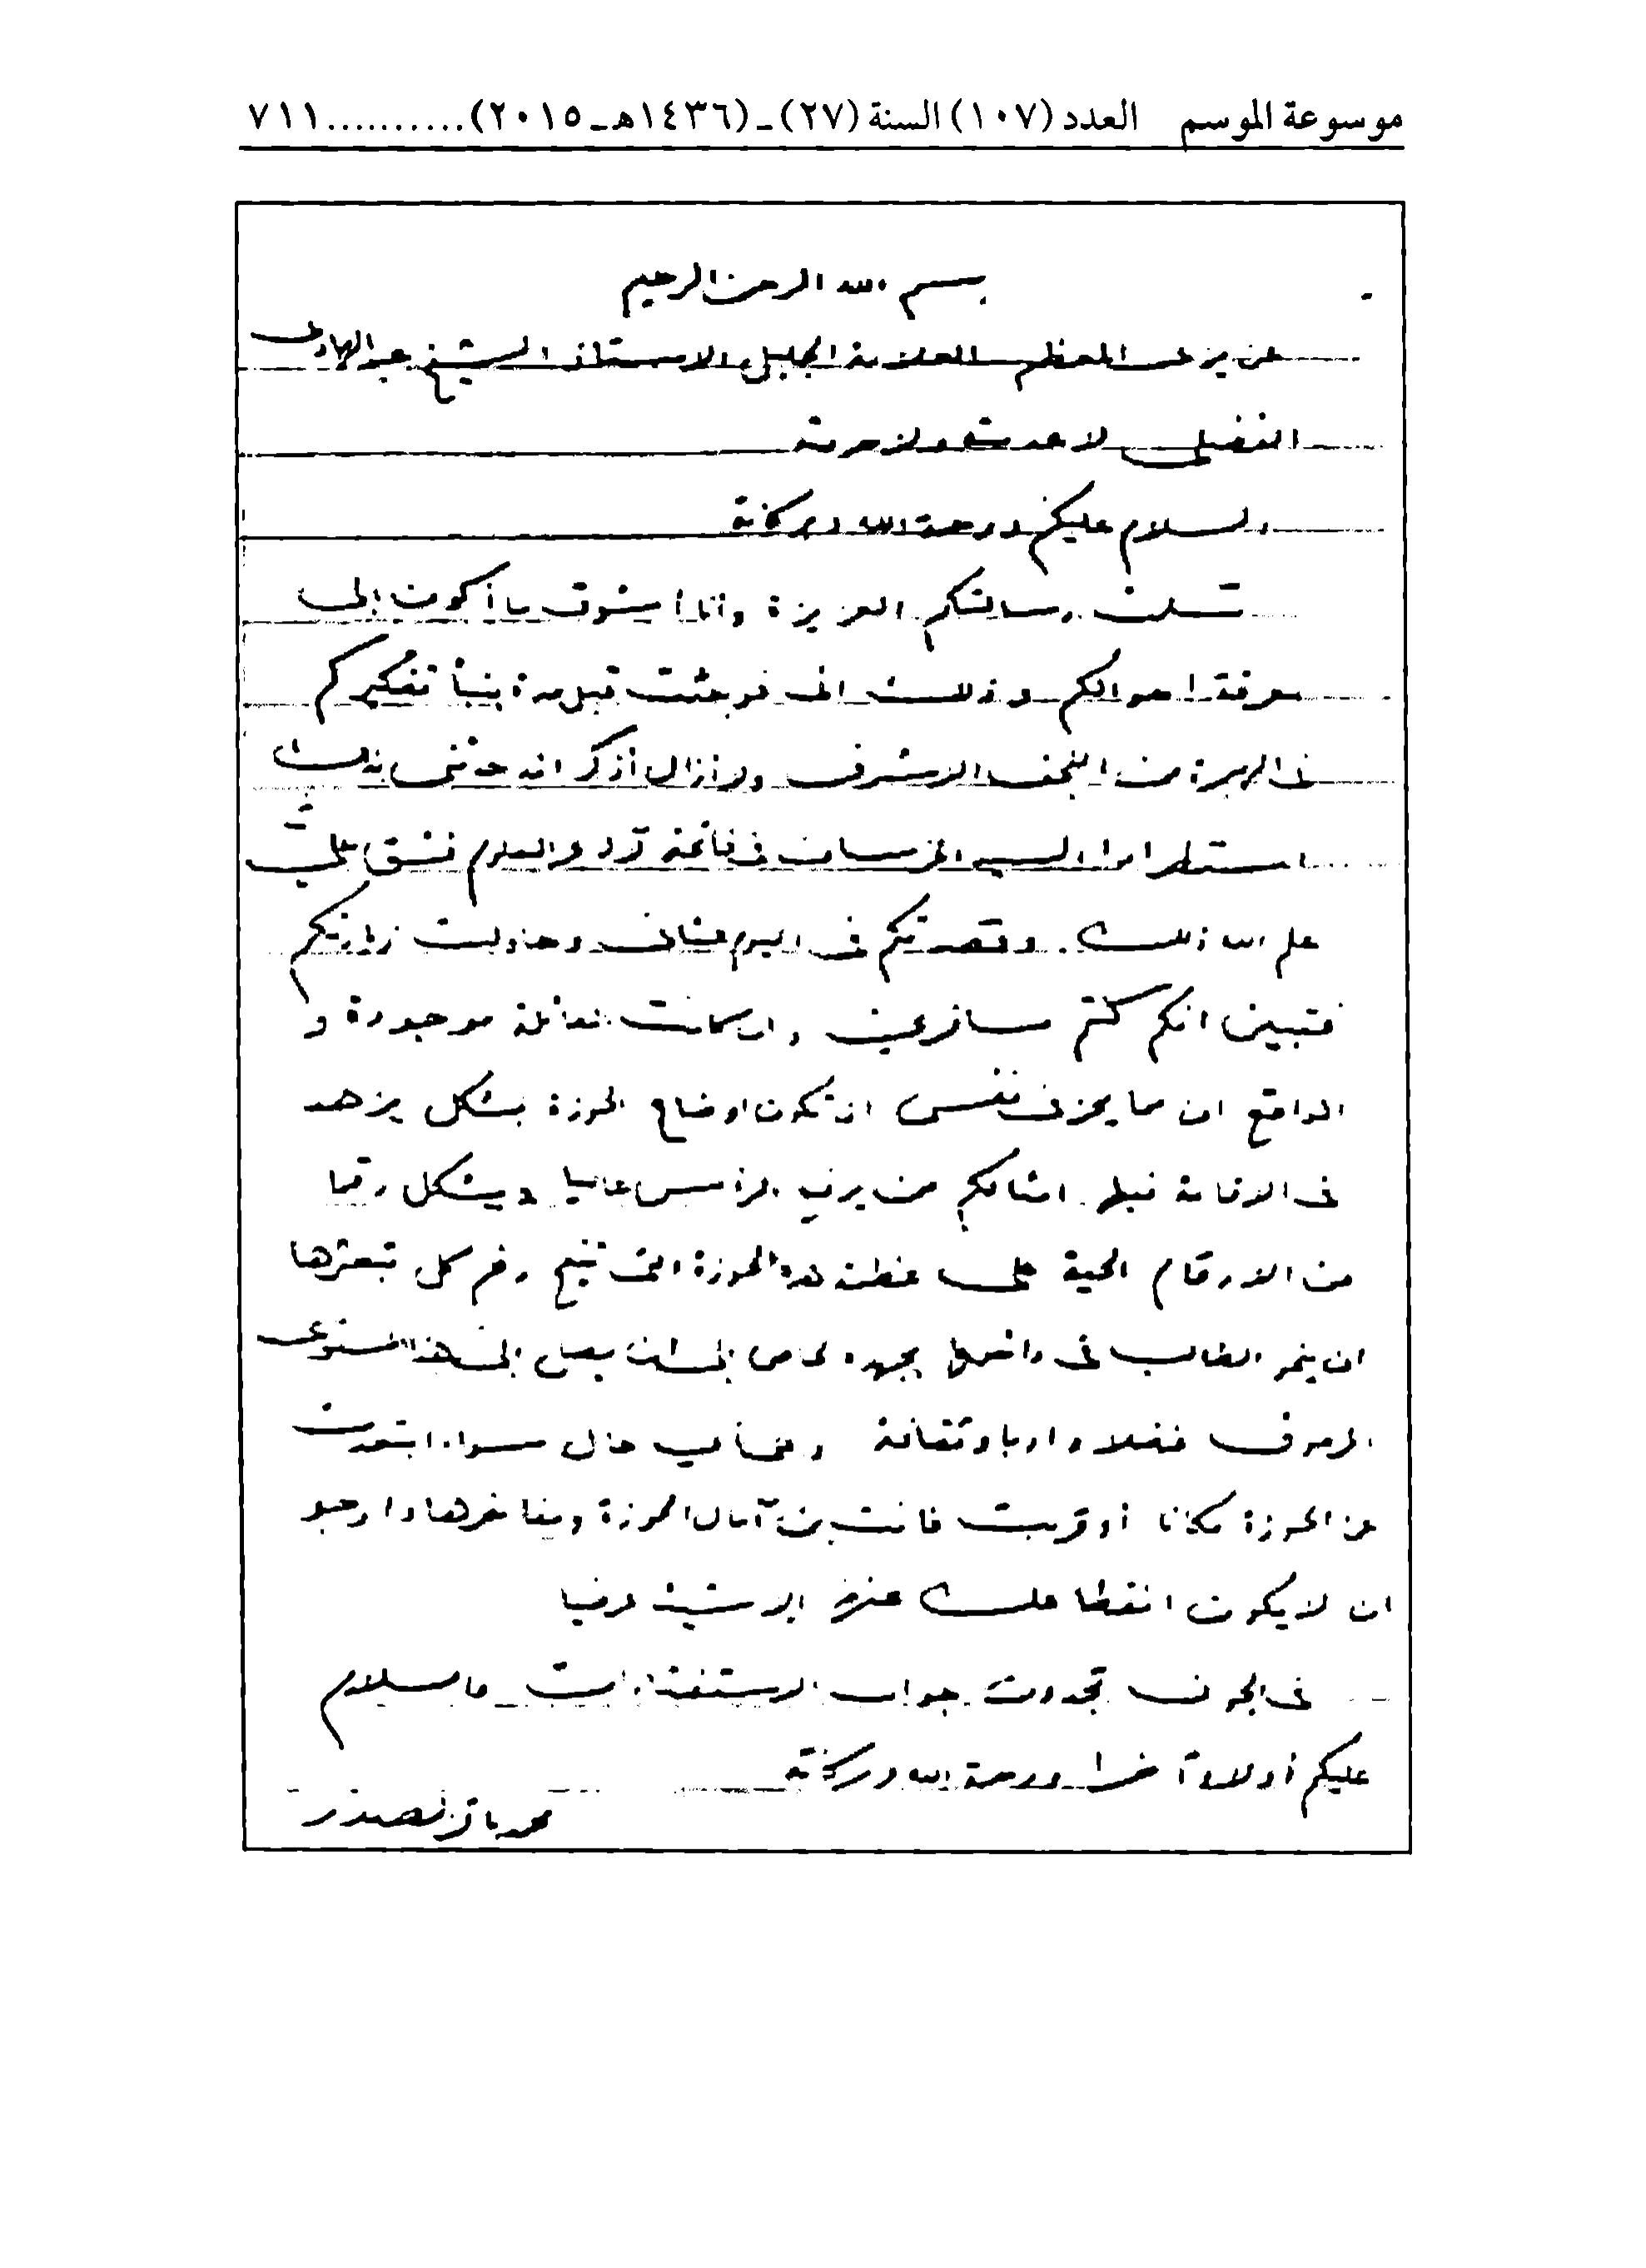 موسوعة الموسم العدد (١٠٧) السنة (٢٧) ـ (١٤٣٦هـ ـ ٢٠١٥)..........٧١١
بسم الله الرحمن الرحيم
عزيزي المعظم العلامة الجليل الاستاذ الشيخ عبد الهادي
الفضلي لا عدمته ولا حرمته
السلام عليكم ورحمة الله وبركاته
تسلمت رسالتكم العزيزة وانا أشوق ما أكون إلى
معرفة احوالكم وذلك اني فوجئت قبل مدة بنبأ تفكيركم
في الهجرة من النجف الاشرف ولا أزال أذكر انه حدثني بذلك
استطرادا السيد الخرسان في فاتحة آل بحر العلوم فشق عليّ
علم الله ذلك. وقصدتكم في اليوم الثاني وحاولت زيارتكم
فتبين انكم كنتم مسافرين وان كانت العائلة موجودة و
الواقع ان مما يحز في نفسي ان تكون اوضاع الحوزة بشكل يزهد
في الاقامة فيها امثالكم من يرفع الرأس عاليا ويشكل رقما
من الارقام الحية على عظمة هذه الحوزة التي تتيح رغم كل تبعثرها
ان ينمو الطالب في داخلها بجهده الخاص إلى ان يصل إلى هذا المستوى
المرموق فضلا وادبا وثقافة وعلى أي حال سواء ابتعدت
عن الحوزة مكانا أو قربت فانت من آمال الحوزة ومفاخرها وارجو
ان لا يكون انقطاعك عنها الا شيئا عرضيا
في الجوف تجدون جواب الاستفتاءات والسلام
عليكم أولا وآخرا ورحمة الله وبركاته
محمد باقر الصدر